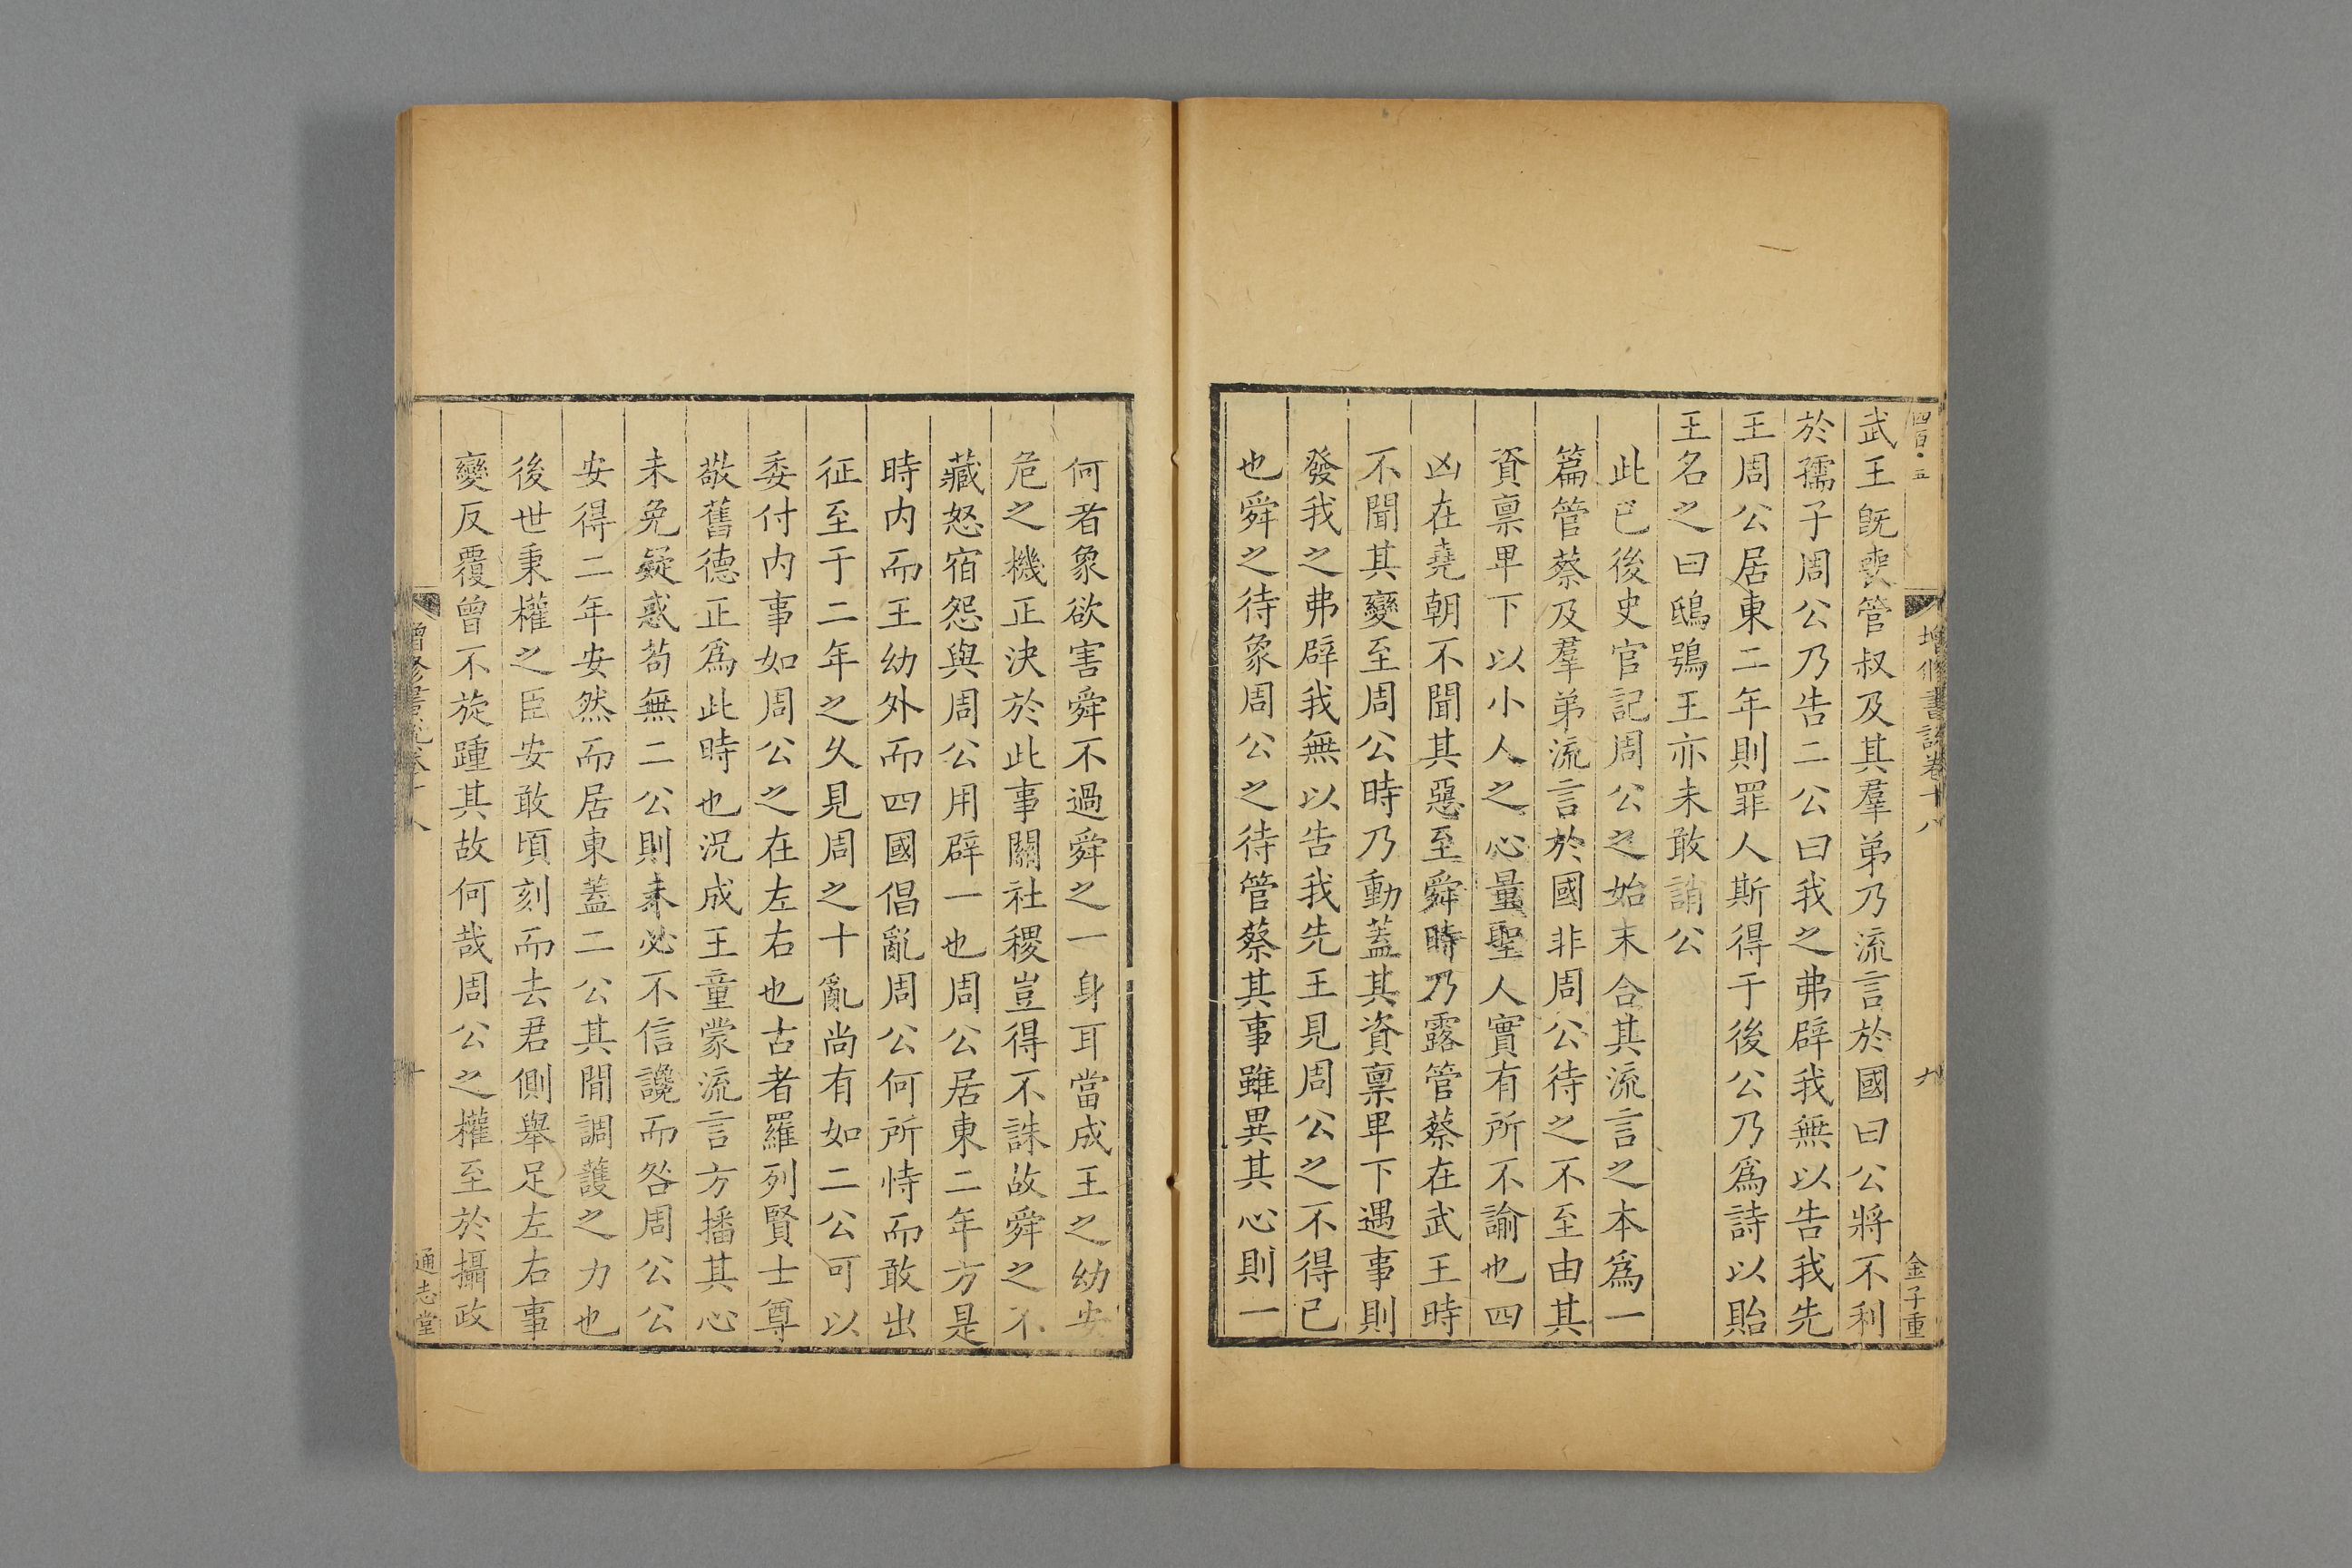 四百·五
增修書說卷十八
九
金子重
武王旣喪管叔及其羣弟乃流言於國曰公將不利
於孺子周公乃告二公曰我之弗辟我無以告我先
王周公居東二年則罪人斯得于後公乃爲詩以貽
王名之曰鴟鴞王亦未敢誚公
此已後史官記周公之始末合其流言之本爲一
篇管蔡及羣弟流言於國非周公待之不至由其
資禀卑下以小人之心量聖人實有所不諭也四
凶在堯朝不聞其惡至舜時乃露管蔡在武王時
不聞其變至周公時乃動蓋其資禀卑下遇事則
發我之弗辟我無以告我先王見周公之不得已
也舜之待象周公之待管蔡其事雖異其心則一
何者象欲害舜不過舜之一身耳當成王之幼安
危之機正決於此事關社稷豈得不誅故舜之不
藏怒宿怨與周公用辟一也周公居東二年方是
時内而王幼外而四國倡亂周公何所恃而敢出
征至于二年之久見周之十亂尚有如二公可以
委付内事如周公之在左右也古者羅列賢士尊
敬舊德正爲此時也況成王童蒙流言方播其心
未免疑惑茍無二公則未必不信讒而咎周公公
安得二年安然而居東蓋二公其間調護之力也
後世秉權之臣安敢頃刻而去君側舉足左右事
變反覆曾不旋踵其故何哉周公之權至於攝政
增修書說卷十八
十
通志堂